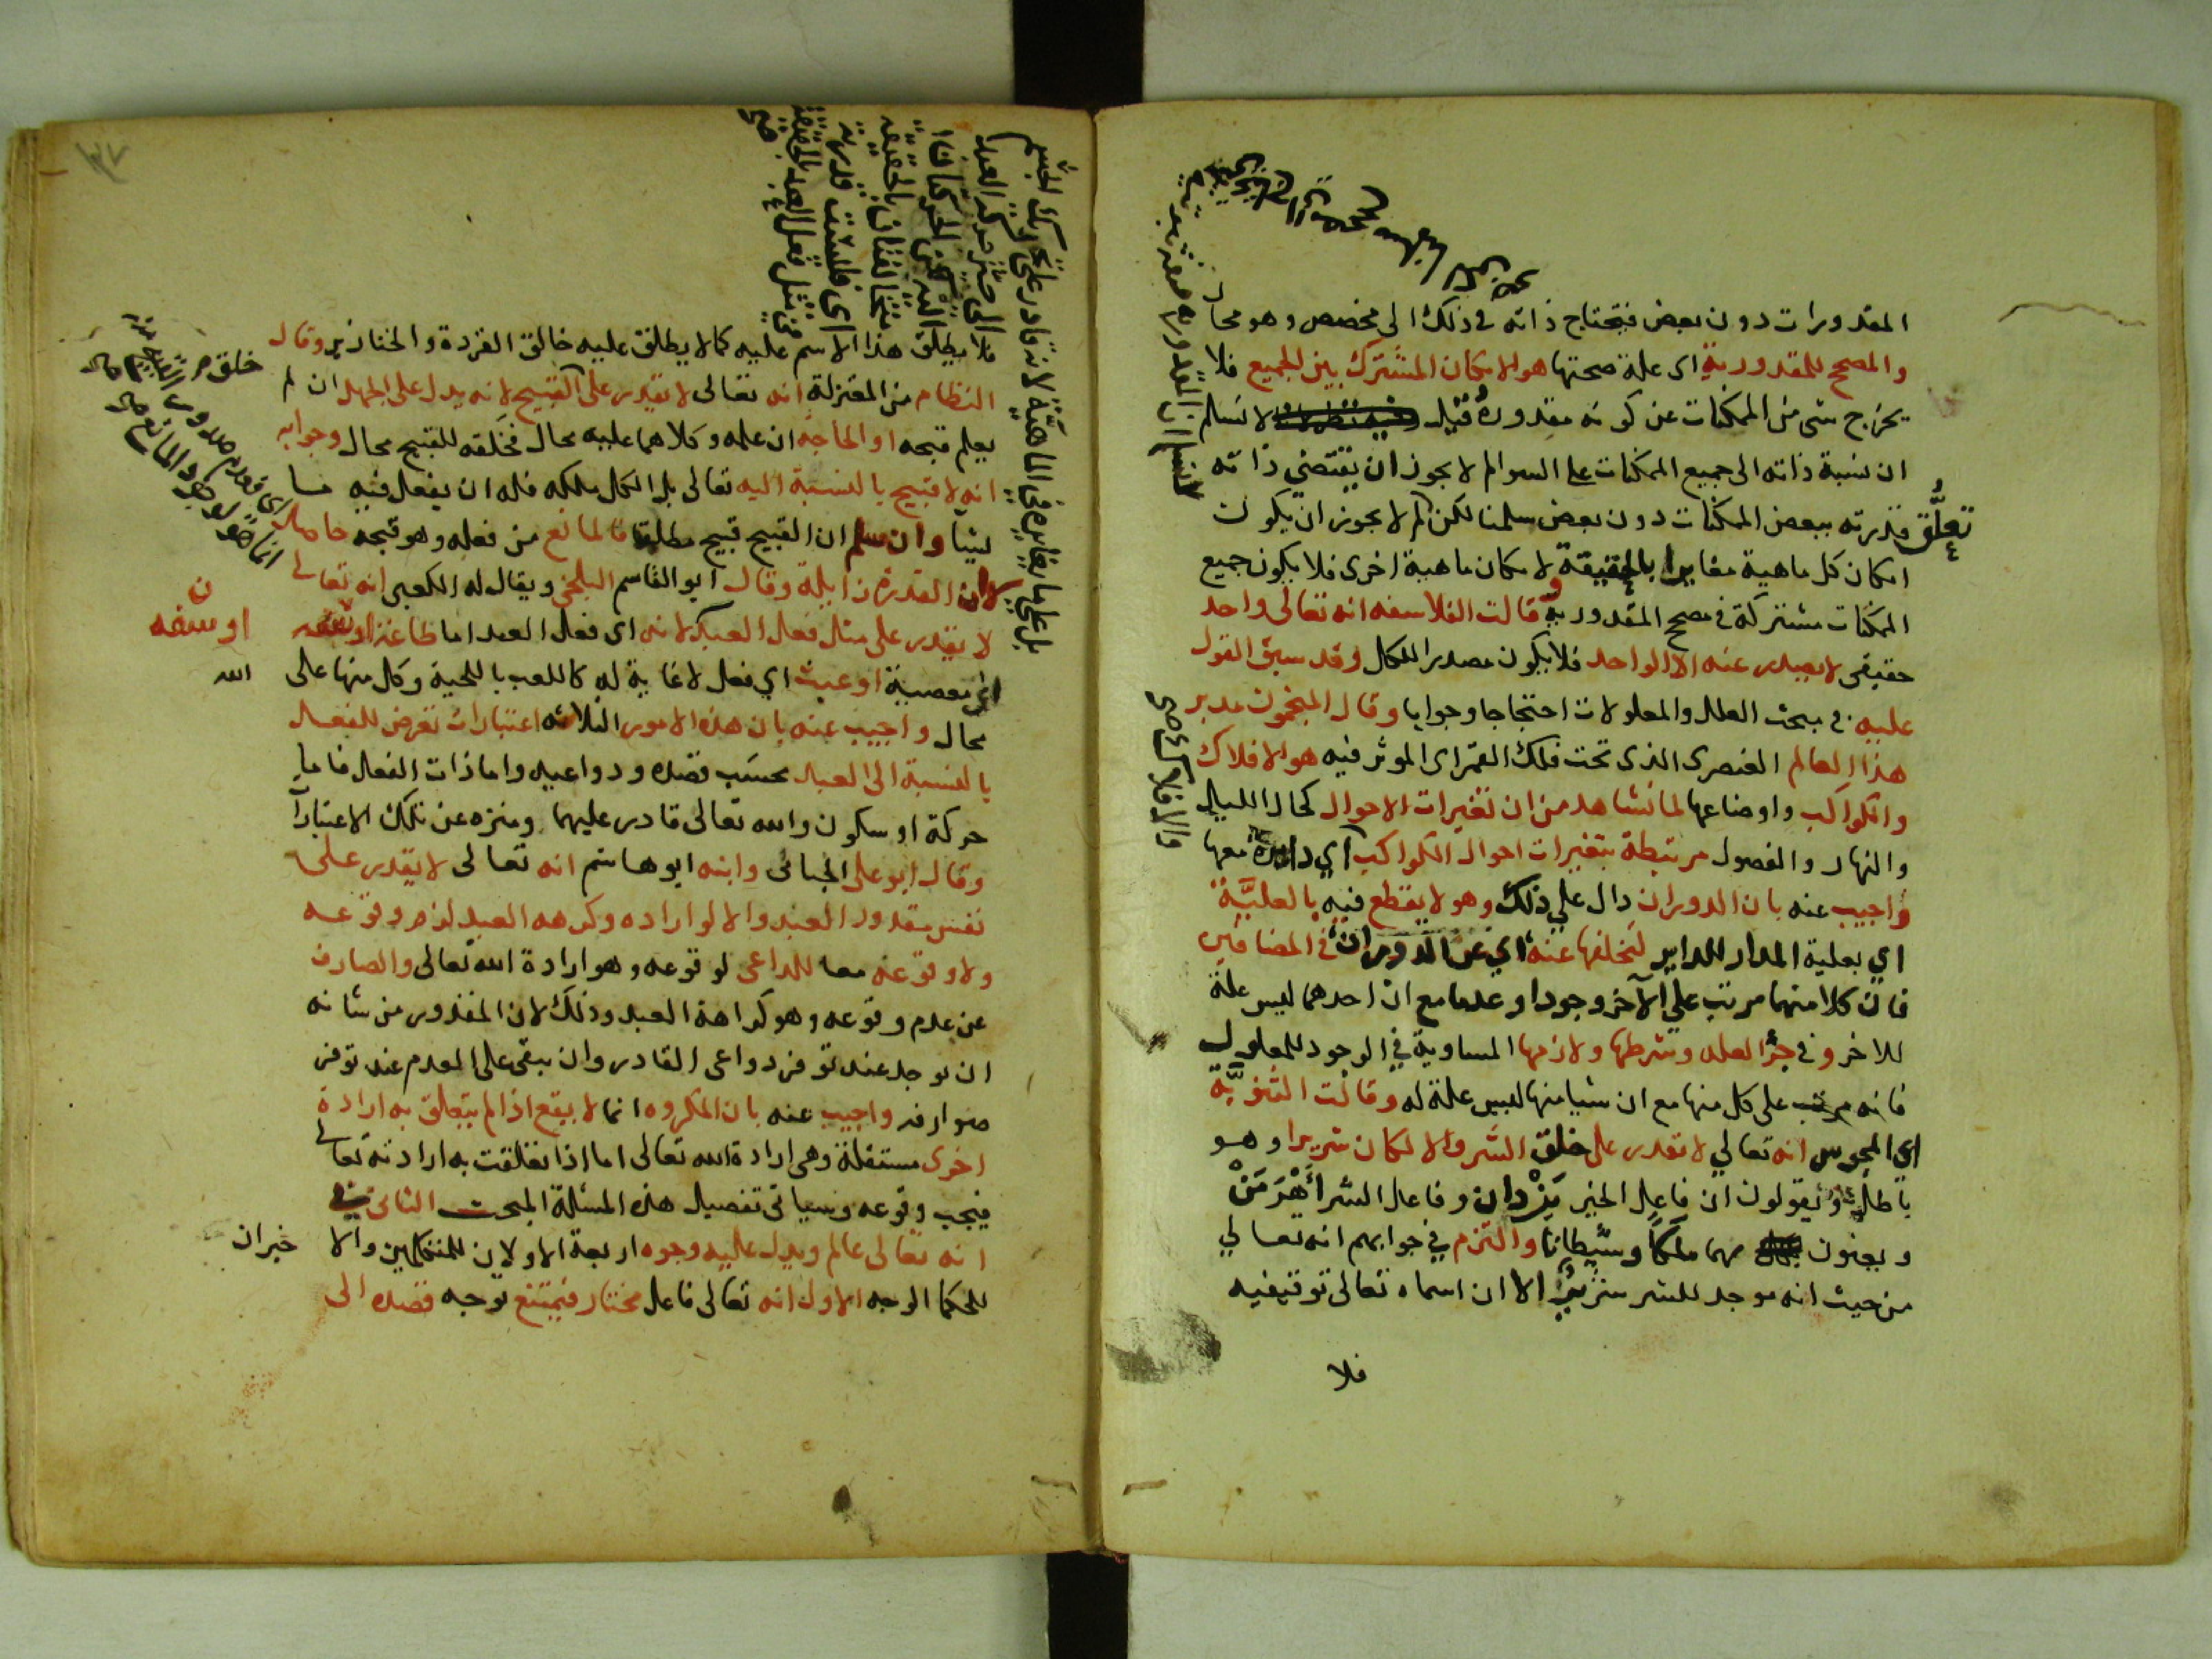 المقدورات دون بعض فيحتاج ذاته في ذلك الى مخصص وهو محال
والمصحح للمقدورية اى علة صحتها هو الامكان المشترك بين الجميع فلا
يخرج شى من الممكنات عن كونه مقدوره قيل لا نسلم
ان نسبة ذاته الى جميع الممكنات على السوا لم لا يجوز ان يقتضي ذاته
تعلق قدرته ببعض الممكنات دون بعض سلمنا لكن لم لا يجوز ان يكون
امكان كل ماهية مغايرا بالحقيقة لامكان ماهية اخرى فلا يكون جميع
الممكنات مشتركة في مصحح المقدورية وقالت الفلاسفه انه تعالى واحد
حقيقى لا يصدر عنه الا الواحد فلا يكون مصدرا للكل وقد سبق القول
عليه في مبحث العلل والمعلولات احتجاجا وجوابا وقال المنجمون مدبر
هذا العالم العنصرى الذى تحت فلك القمر اى الموثر فيه هو الافلاك
والكواكب واوضاعها لما نشاهد من ان تغيرات الاحوال كحال الليل
والنهار والفصول مرتبطة بتغيرات احوال الكواكب اي دايرة معها
واجيب عنه بان الدوران دال علي ذلك وهو لا يقطع فيه بالعليّة
اي بعلية المدار للداير لتخلفها عنه اي عن الدوران في المضافين
فان كلا منهما مرتب على الآخر وجودا وعدما مع ان احدهما ليس علة
للاخر وفي جزء العله وشرطها ولازمها المساوية في الوجود للمعلول
فانه مرتب على كل منها مع ان شيا منها ليس علة له وقالت الثنويّة
اى المجوس انه تعالي لا تقدر على خلق الشر والا لكان شريرا وهو
باطل ويقولون ان فاعل الخير يَزْدان وفاعل الشر أَهْرَمَنْ
ويعنون بهما ملكًا وشيطانا والتزم في جوابهم انه تعالي
من حيث انه موجد للشر شرّير الا ان اسماه تعالى توقيفيه
فلا
والافلاك
فلا يطلق هذا الاسم عليه كما لا يطلق عليه خالق القردة والخنازير وقال
النظام من المعتزلة انه تعالى لا يقدر على القبيح لانه يدل على الجهل ان لم
يعلم قبحه او الحاجه ان علمه وكلاهما عليه محال فخلقه للقبيح محال وجوابه
انه لا قبيح بالنسبة اليه تعالى بل الكل ملكه فله ان يفعل فيه ما
يشا وان سلم ان القبيح قبيح مطلقا فالمانع من فعله وهو قبحه حاصل
لا ان القدرة زايلة وقال ابو القاسم البلخي ويقال له الكعبى انه تعالى
لا يقدر على مثل فعل العبد لانه اى فعل العبد اما طاعة او سفه
اى معصية او عبث اي فعل لا غاية له كاللعب باللحية وكل منها على الله
محال واجيب عنه بان هذه الامور الثلاثه اعتبارات تعرض للفعل
بالنسبة الى العبد بحسب قصده ودواعيه واما ذات الفعل فاما
حركة او سكون والله تعالى قادر عليهما ومنزه عن تلك الاعتبارات
وقال ابو على الجبائى وابنه ابو هاشم انه تعالى لا يقدر على
نفس مقدور العبد والا لو اراده وكرهه العبد لزم وقوعه
ولا وقوعه معا للداعى لوقوعه وهو ارادة الله تعالى والصارف
عن عدم وقوعه وهو كراهة العبد وذلك لان المقدور من شانه
ان يوجد عند توفر دواعى القادر وان يبقى على العدم عند توفر
صوارفه واجيب عنه بان المكروه انما لا يقع اذا لم يتعلق به ارادة
اخرى مستقلة وهى ارادة الله تعالى اما اذا تعلقت به ارادته تعالى
فيجب وقوعه وسياتى تفصيل هذه المسئلة المبحث الثانى في
انه تعالى عالم ويدل عليه وجوه اربعة الاولان للمتكلمين والاخيران
للحكما الوجه الاول انه تعالى فاعل مختار فيمتنع توجه قصده الى
او سفه
٣٧